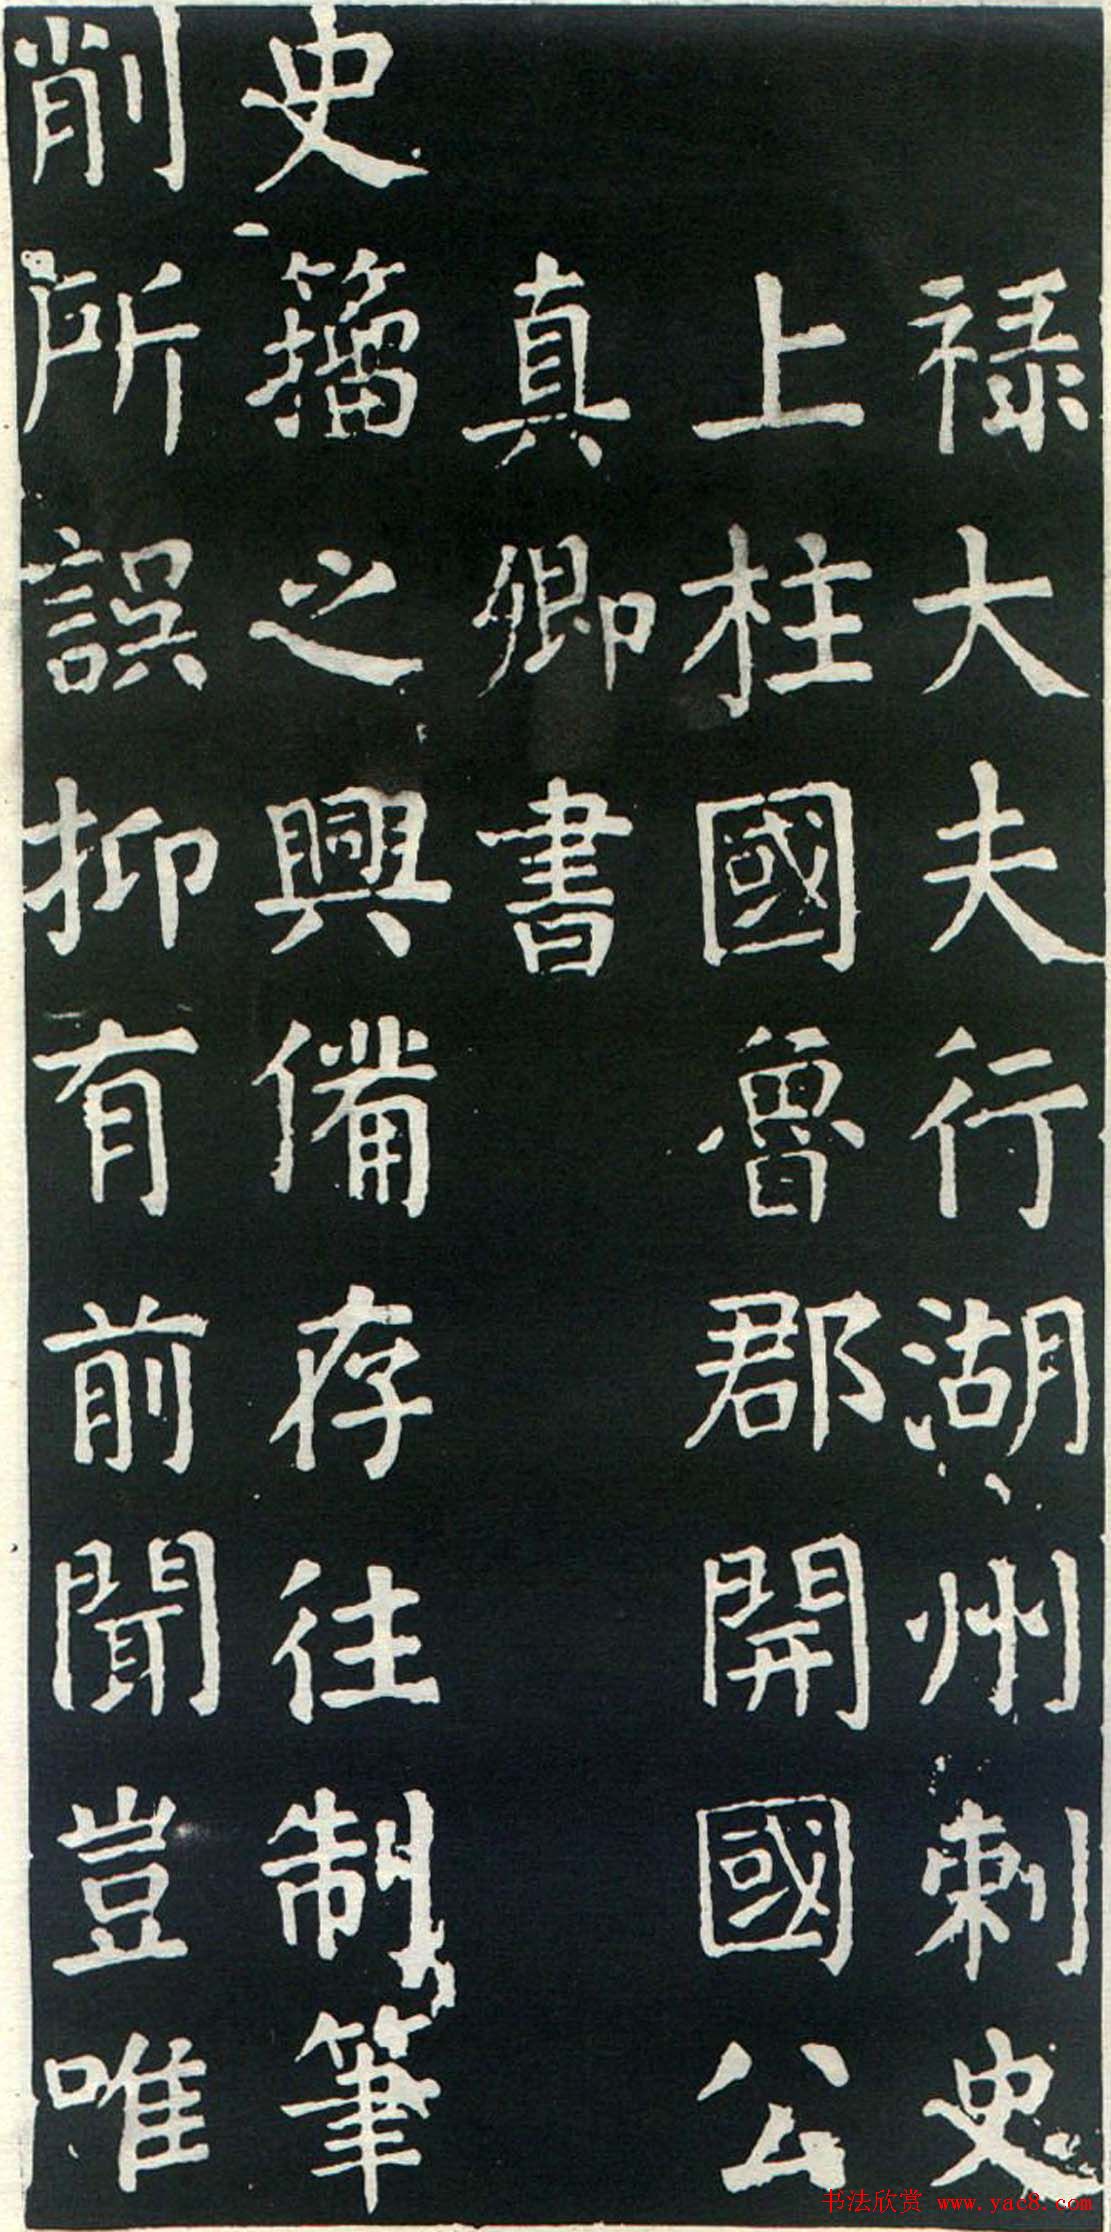 禄大夫行湖州刺史
上柱國魯郡開國公
真卿書
史籀之興備存往制筆
削所誤抑有前聞豈唯
书法欣赏 www.yac8.com